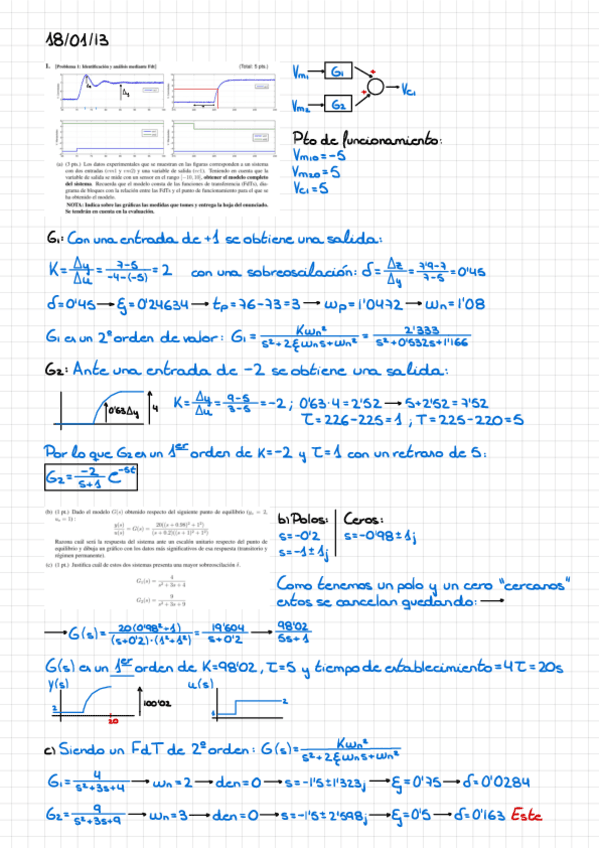 18/01/13
1. [Problema 1: Identificación y análisis mediante Fdt] (Total: 5 pts.)
Vm1 → G1
Vm2 → G2
→ Vc1
Pto de funcionamiento:
Vm10=-5
Vm20=5
Vc1=5
(a) (3 pts.) Los datos experimentales que se muestran en las figuras corresponden a un sistema
con dos entradas (vm1 y vm2) y una variable de salida (vc1). Teniendo en cuenta que la
variable de salida se mide con un sensor en el rango [-10, 10], obtener el modelo completo
del sistema. Recuerda que el modelo consta de las funciones de transferencia (FdTs), dia-
grama de bloques con la relación entre las FdTs y el punto de funcionamiento para el que se
ha obtenido el modelo.
NOTA: Indica sobre las gráficas las medidas que tomes y entrega la hoja del enunciado.
Se tendrán en cuenta en la evaluación.
G1: Con una entrada de +1 se obtiene una salida:
K = Δy/Δu = 7-5/-4-(-5) = 2 con una sobreoscilación: δ = Δz/Δy = 7'9-7/7-5 = 0'45
δ=0'45 → ξ=0'24634 → tp=76-73=3 → ωp=1'0472 → ωn=1'08
G1 es un 2º orden de valor: G1 = Kωn²/s²+2ξωns+ωn² = 2'333/s²+0'532s+1'166
G2: Ante una entrada de -2 se obtiene una salida:
0'63Δy 4 K = Δy/Δu = 9-5/3-5 = -2 ; 0'63·4=2'52 → 5+2'52=7'52
τ=226-225=1 , T=225-220=5
Por lo que G2 es un 1er orden de K=-2 y τ=1 con un retraso de 5:
G2 = -2/s+1 e^-5t
(b) (1 pt.) Dado el modelo G(s) obtenido respecto del siguiente punto de equilibrio (y0 = 2,
u0 = 1) :
y(s)/u(s) = G(s) = 20((s + 0.98)² + 1²)/(s + 0.2)((s + 1)² + 1²)
Razona cuál será la respuesta del sistema ante un escalón unitario respecto del punto de
equilibrio y dibuja un gráfico con los datos más significativos de esa respuesta (transitorio y
régimen permanente).
(c) (1 pt.) Justifica cuál de estos dos sistemas presenta una mayor sobreoscilación δ.
G1(s) = 4/s² + 3s + 4
G2(s) = 9/s² + 3s + 9
b) Polos: Ceros:
s=-0'2 s=-0'98±1j
s=-1±1j
Como tenemos un polo y un cero "cercanos"
estos se cancelan quedando: →
→ G(s) = 20(0'98²+1)/(s+0'2)·(1²+1²) = 19'604/s+0'2 → 98'02/5s+1
G(s) es un 1er orden de K=98'02, τ=5 y tiempo de establecimiento=4τ=20s
y(s) u(s)
2 20 100'02 1 2
c) Siendo un FdT de 2º orden: G(s) = Kωn²/s²+2ξωns+ωn²
G1 = 4/s²+3s+4 → ωn=2 → den=0 → s=-1'5±1'323j → ξ=0'75 → δ=0'0284
G2 = 9/s²+3s+9 → ωn=3 → den=0 → s=-1'5±2'598j → ξ=0'5 → δ=0'163 Este